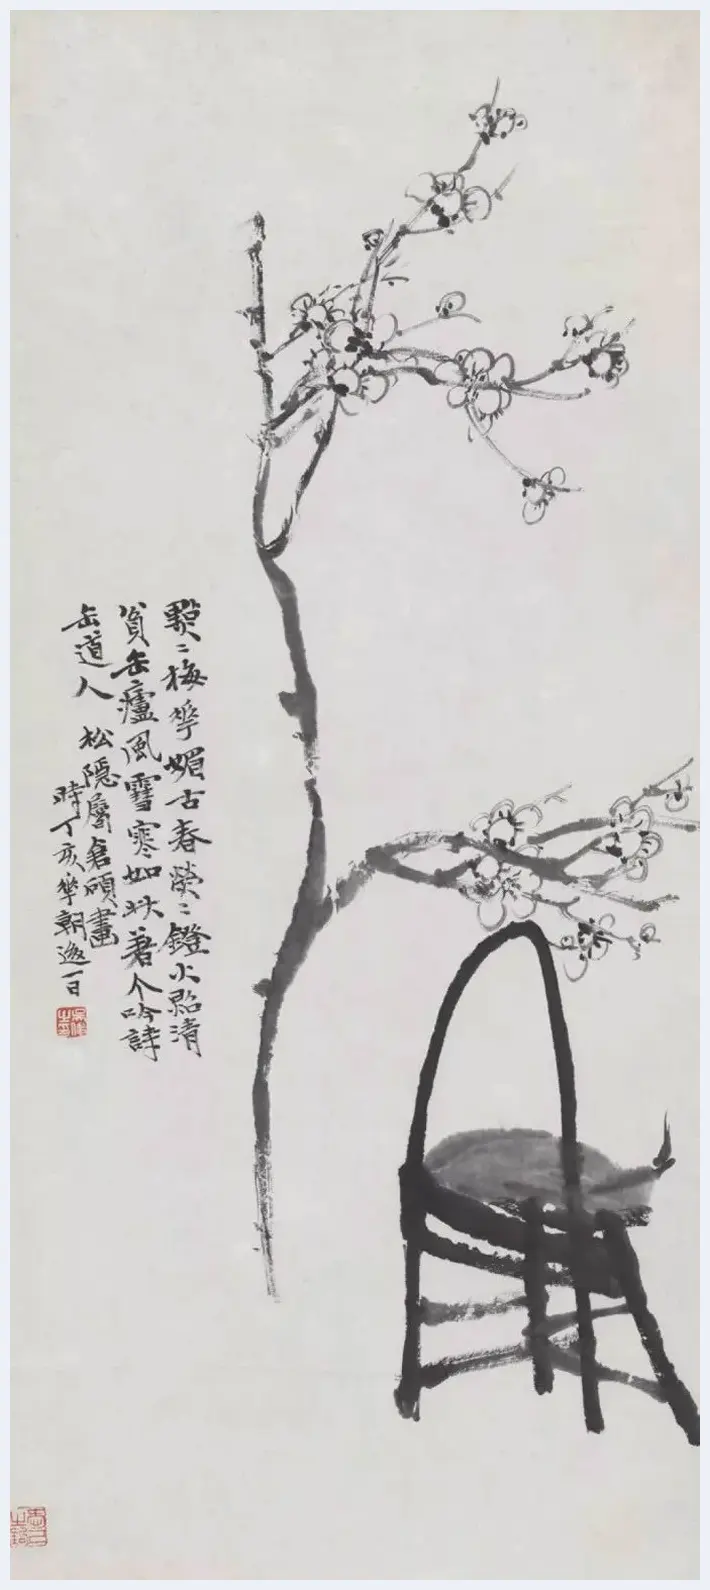 點〻梅華媚古春熒〻鐙火照清
貧缶廬風雪寒如此著个吟詩
缶道人
松隱屬倉碩畫
時丁亥華朝後一日